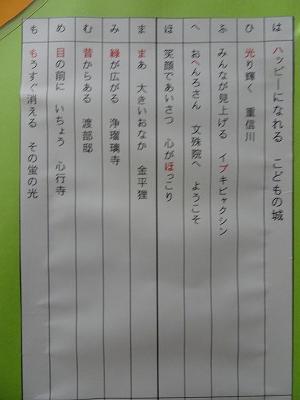 は ハッピーになれる こどもの城
ひ 光り輝く 重信川
ふ みんなが見上げる イブキビャクシン
へ おへんろさん 文殊院へ ようこそ
ほ 笑顔であいさつ 心がほっこり
ま まあ 大きいおなか 金平狸
み 緑が広がる 浄瑠璃寺
む 昔からある 渡部邸
め 目の前に いちょう 心行寺
も もうすぐ消える その蛍の光